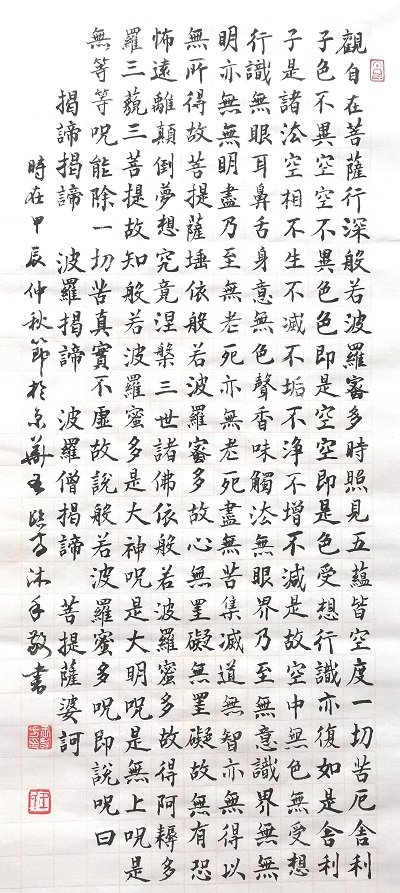 觀自在菩薩行深般若波羅蜜多時照見五蘊皆空度一切苦厄舍利
子色不異空空不異色色即是空空即是色受想行識亦復如是舍利
子是諸法空相不生不滅不垢不淨不增不減是故空中無色無受想
行識無眼耳鼻舌身意無色聲香味觸法無眼界乃至無意識界無無
明亦無無明盡乃至無老死亦無老死盡無苦集滅道無智亦無得以
無所得故菩提薩埵依般若波羅蜜多故心無罣礙無罣礙故無有恐
怖遠離顛倒夢想究竟涅槃三世諸佛依般若波羅蜜多故得阿耨多
羅三藐三菩提故知般若波羅蜜多是大神呪是大明呪是無上呪是
無等等呪能除一切苦真實不虛故說般若波羅蜜多呪即說呪曰
揭諦揭諦 波羅揭諦 波羅僧揭諦 菩提薩婆訶
時在甲辰仲秋節於京華沐手敬書